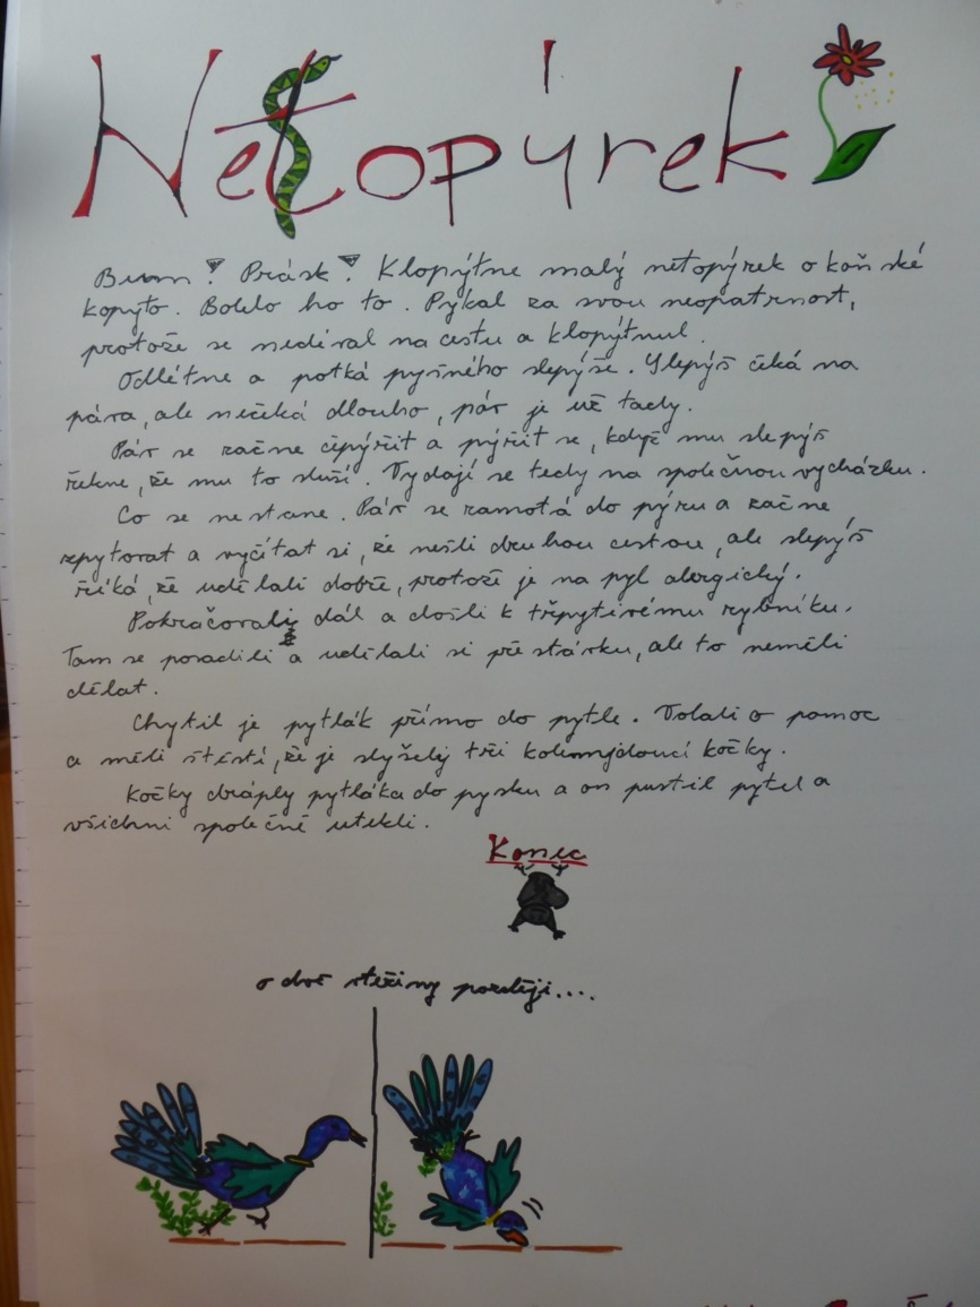 Netopýrek
Bum! Prásk! Klopýtne malý netopýrek o koňské
kopyto. Bolelo ho to. Pykal za svou neopatrnost,
protože se nedíval na cestu a klopýtnul.
Odlétne a potká pyšného slepýše. Slepýš čeká na
páva, ale nečeká dlouho, páv je už tady.
Páv se začne čepýřit a pýřit se, když mu slepýš
řekne, že mu to sluší. Vydají se tedy na společnou vycházku.
Co se nestane. Páv se zamotá do pýru a začne
zpytovat a vyčítat si, že nešli druhou cestou, ale slepýš
říká, že udělali dobře, protože je na pyl alergický.
Pokračovali dál a došli k třpytivému rybníku.
Tam se posadili a udělali si přestávku, ale to neměli
dělat.
Chytil je pytlák přímo do pytle. Volali o pomoc
a měli štěstí, že je slyšely tři kolemjdoucí kočky.
Kočky dráply pytláka do pysku a on pustil pytel a
všichni společně utekli.
Konec
o dvě vteřiny později....